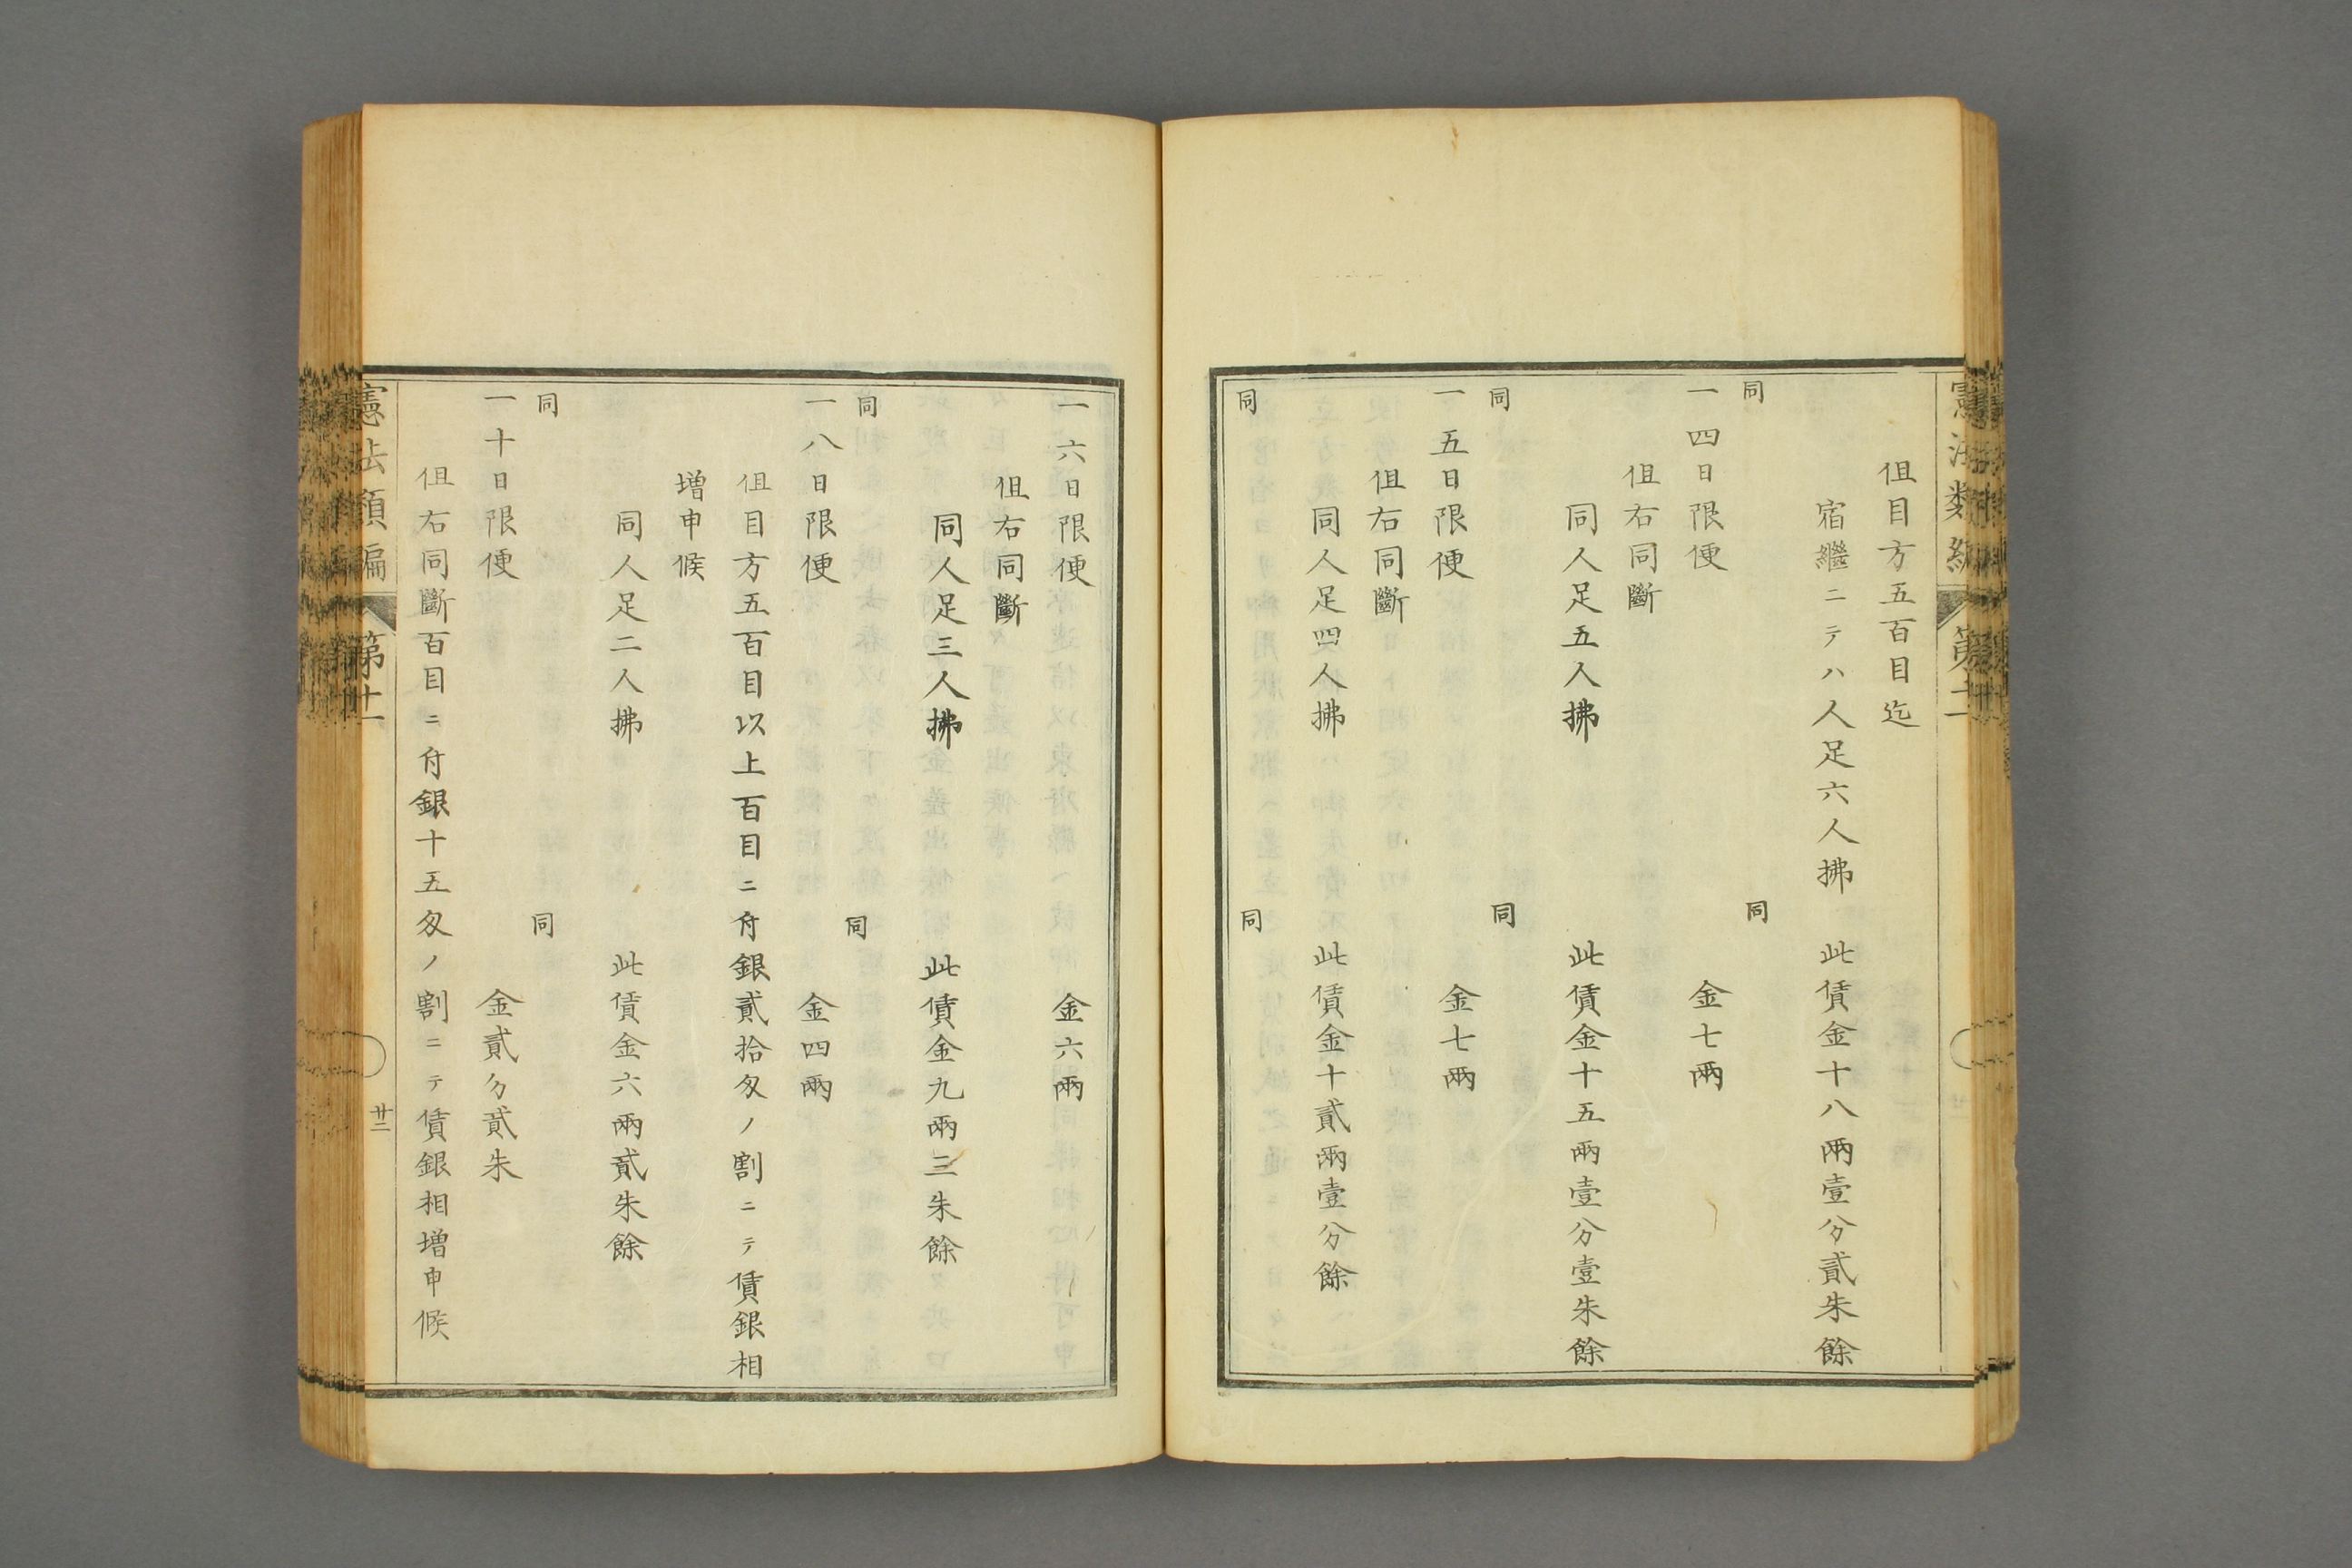 伹目方五百目迄
宿繼ニテハ人足六人拂　此賃金十八兩壹分貳朱餘
同　同
一四日限便　金七兩
伹右同斷
同人足五人拂　此賃金十五兩壹分壹朱餘
同　同
一五日限便　金七兩
伹右同斷
同人足四人拂　此賃金十貳兩壹分餘
同　同
一六日限便　金六兩
伹右同斷
同人足三人拂　此賃金九兩三朱餘
同　同
一八日限便　金四兩
伹目方五百目以上百目ニ付銀貳拾匁ノ割ニテ賃銀相
増申候
同人足二人拂　此賃金六兩貳朱餘
同　同
一十日限便　金貳分貳朱
伹右同斷百目ニ付銀十五匁ノ割ニテ賃銀相増申候
憲法類編　第十一　廿二